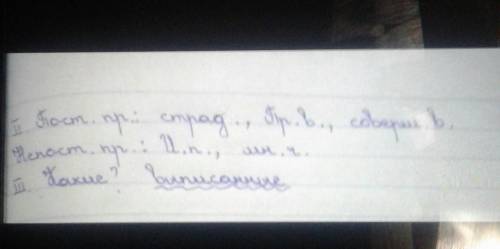 II Пост. пр.: страд., Пр.в., соверш.в.
Непост. пр.: И.п., мн.ч.
III Какие? выписанные